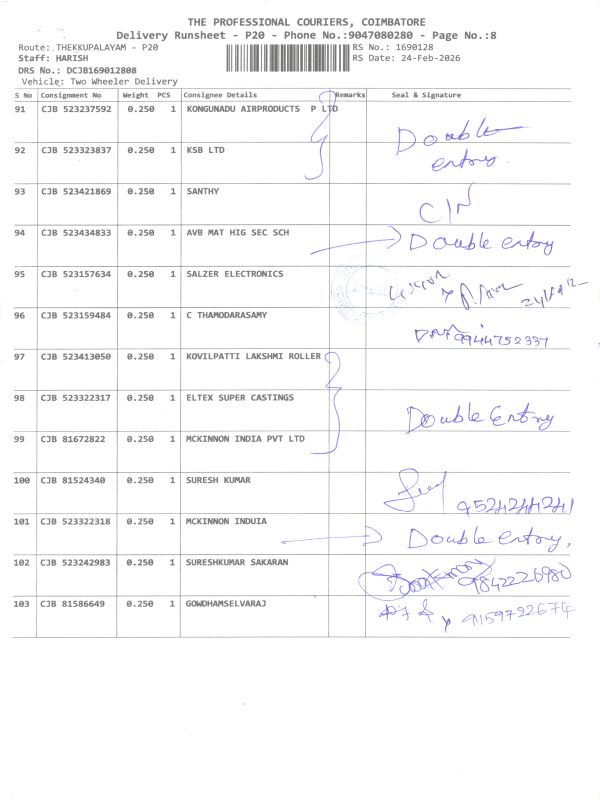 THE PROFESSIONAL COURIERS, COIMBATORE
Delivery Runsheet - P20 - Phone No.:9047080280 - Page No.:8
Route: THEKKUPALAYAM - P20 RS No.: 1690128
Staff: HARISH RS Date: 24-Feb-2026
DRS No.: DCJB169012808
Vehicle: Two Wheeler Delivery
S No Consignment No Weight PCS Consignee Details Remarks Seal & Signature
91 CJB 523237592 0.250 1 KONGUNADU AIRPRODUCTS P LTD Double
entry.
92 CJB 523323837 0.250 1 KSB LTD
93 CJB 523421869 0.250 1 SANTHY C/N
94 CJB 523434833 0.250 1 AVB MAT HIG SEC SCH Double entry
95 CJB 523157634 0.250 1 SALZER ELECTRONICS
96 CJB 523159484 0.250 1 C THAMODARASAMY 9944752337
97 CJB 523413050 0.250 1 KOVILPATTI LAKSHMI ROLLER
98 CJB 523322317 0.250 1 ELTEX SUPER CASTINGS Double Entry
99 CJB 81672822 0.250 1 MCKINNON INDIA PVT LTD
100 CJB 81524340 0.250 1 SURESH KUMAR 9524244241
101 CJB 523322318 0.250 1 MCKINNON INDUIA Double entry,
102 CJB 523242983 0.250 1 SURESHKUMAR SAKARAN 9842226980
103 CJB 81586649 0.250 1 GOWDHAMSELVARAJ 9159722674